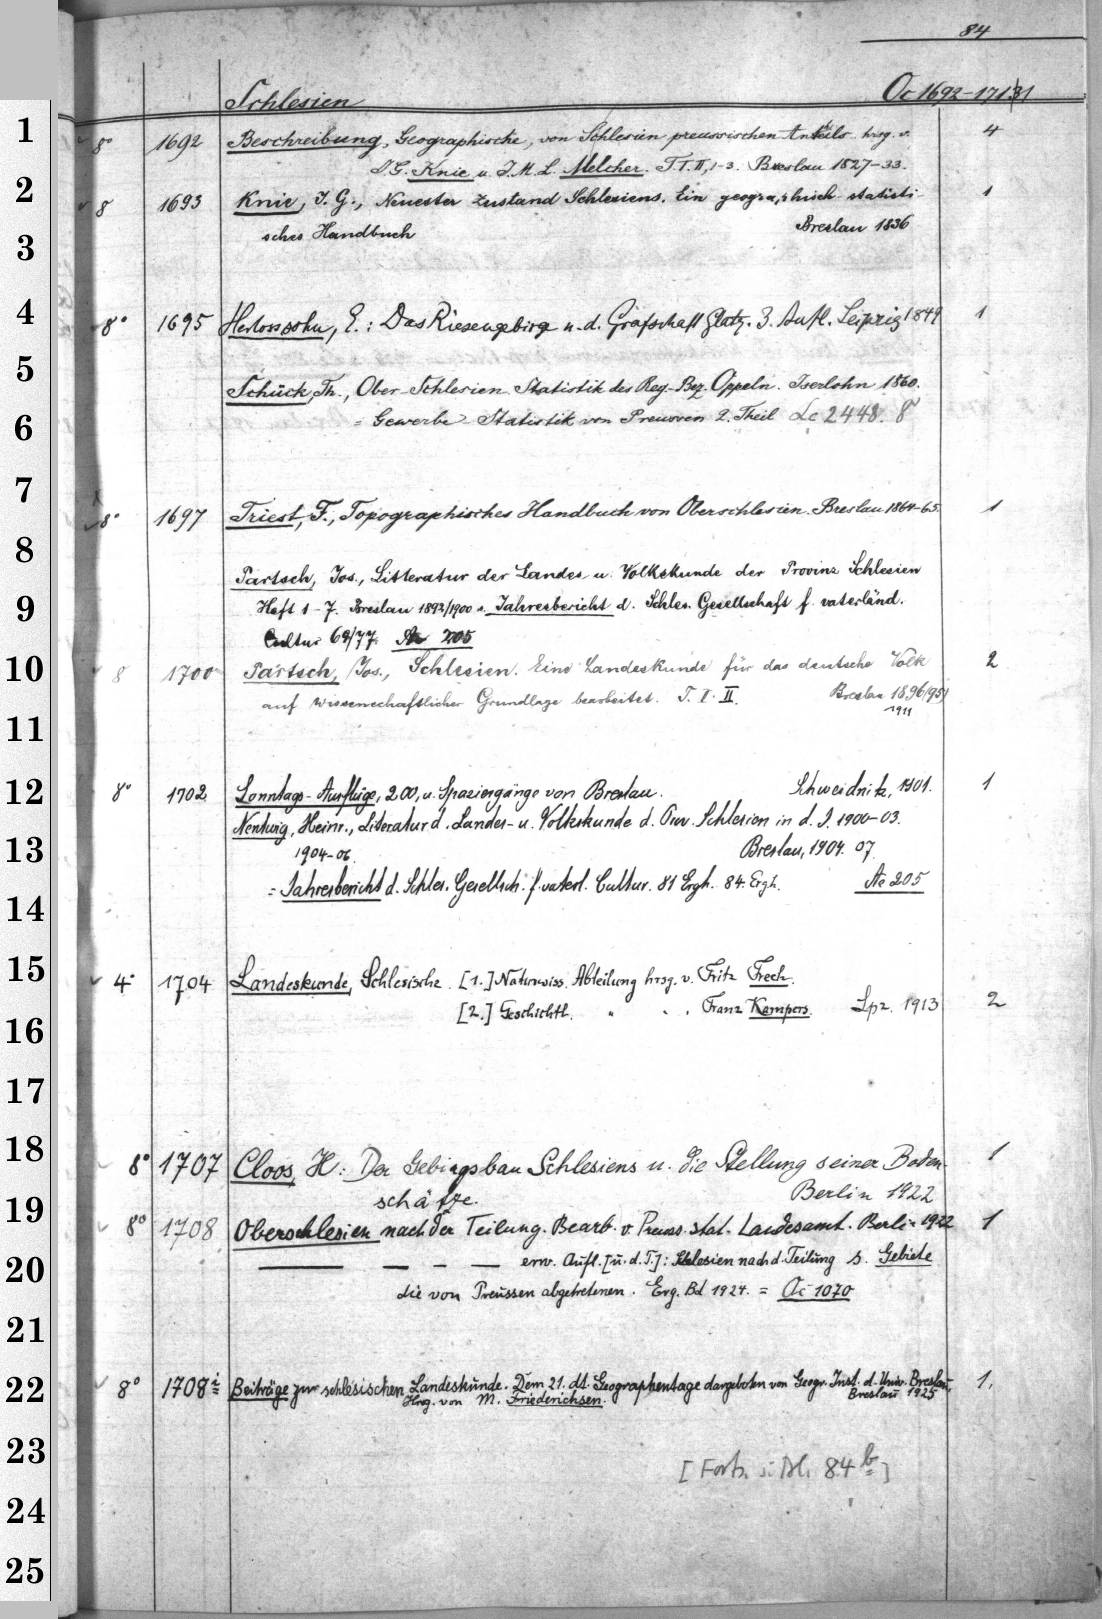 84
Schlesien Oc 1692-1731
8° 1692 Beschreibung, Geographische, von Schlesien preussischen Antheils hrsg. v. 4
J. G. Knie u. J. M. L. Melcher. T. I. II, 1-3. Breslau 1827-33.
8 1693 Knie, J. G., Neuester Zustand Schlesiens. Ein geographisch statisti- 1
sches Handbuch Breslau 1836
8° 1695 Herlosssohn, : Das Riesengebirge u. d. Grafschaft Glatz. 3. Aufl. Leipzig 1849 1
Schück, Th., Ober-Schlesien. Statistik des Reg.-Bez. Oppeln. Iserlohn 1860.
= Gewerbe-Statistik von Preussen 2. Theil Lc 2448. 8°
8° 1697 Triest, F., Topographisches Handbuch von Oberschlesien. Breslau 1864-65. 1
Partsch, Jos., Litteratur der Landes u. Volkskunde der Provinz Schlesien
Heft 1-7. Breslau 1892/1900 s. Jahresbericht d. Schles. Gesellschaft f. vaterländ.
Cultur 69/77. Ae 205
8 1700 Partsch, Jos., Schlesien. Eine Landeskunde für das deutsche Volk 2
auf wissenschaftlicher Grundlage bearbeitet. T. I. II. Breslau 1896
1911
8° 1702 Sonntags-Ausflüge, 200, u. Spaziergänge von Breslau. Schweidnitz, 1901. 1
Nentwig, Heinr., Literatur d. Landes- u. Volkskunde d. Prov. Schlesien in d. J. 1900-03.
1904-06. Breslau, 1904. 07.
= Jahresbericht d. Schles. Gesellsch. f. vaterl. Cultur. 81 Ergh. 84. Ergh. Ae 205
4° 1704 Landeskunde, Schlesische. [1.] Naturwiss. Abteilung hrsg. v. Fritz Frech.
[2.] Geschichtl. " " " Franz Kampers. Lpz. 1913 2
8° 1707 Cloos, H.: Der Gebirgsbau Schlesiens u. die Stellung seiner Boden- 1
schätze. Berlin 1922
8° 1708 Oberschlesien nach der Teilung. Bearb. v. Preuss. stat. Landesamt. Berlin 1922 1
— — — — erw. Aufl. [u. d. T.]: Schlesien nach d. Teilung s. Gebiete
die von Preussen abgetretenen. Erg. Bd 1924. = Oc 1070
8° 1708 i Beiträge zur schlesischen Landeskunde. Dem 21. dt. Geographentage dargeboten von Geogr. Inst. d. Univ. Breslau, 1.
Hrsg. von M. Friederichsen. Breslau 1925
[Forts. s. Bl. 84 b]
1
2
3
4
5
6
7
8
9
10
11
12
13
14
15
16
17
18
19
20
21
22
23
24
25